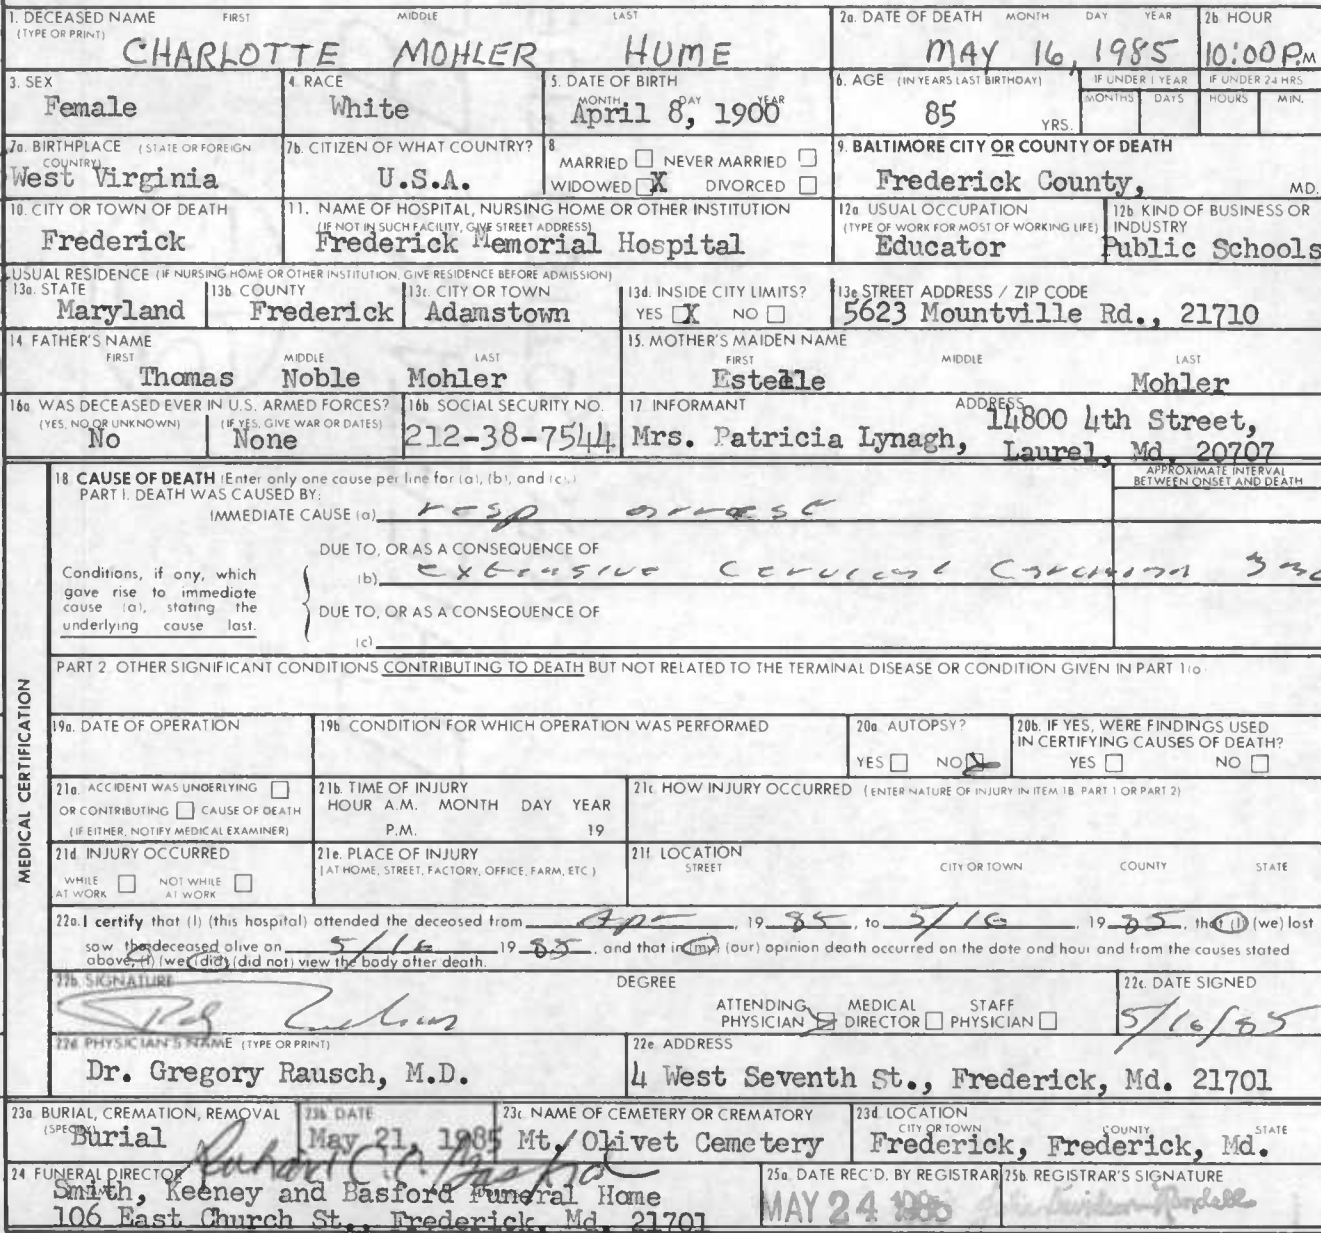 1. DECEASED NAME FIRST MIDDLE LAST
(TYPE OR PRINT)
CHARLOTTE MOHLER HUME
2a. DATE OF DEATH MONTH DAY YEAR
MAY 16, 1985
2b HOUR
10:00 P.M
3. SEX
Female
4. RACE
White
5. DATE OF BIRTH
MONTH DAY YEAR
April 8, 1900
6. AGE (IN YEARS LAST BIRTHDAY)
85 YRS.
IF UNDER 1 YEAR
MONTHS DAYS
IF UNDER 24 HRS
HOURS MIN.
7a. BIRTHPLACE (STATE OR FOREIGN COUNTRY)
West Virginia
7b. CITIZEN OF WHAT COUNTRY?
U.S.A.
8
MARRIED NEVER MARRIED
WIDOWED X DIVORCED
9. BALTIMORE CITY OR COUNTY OF DEATH
Frederick County, MD.
10. CITY OR TOWN OF DEATH
Frederick
11. NAME OF HOSPITAL, NURSING HOME OR OTHER INSTITUTION
(IF NOT IN SUCH FACILITY, GIVE STREET ADDRESS)
Frederick Memorial Hospital
12a USUAL OCCUPATION
(TYPE OF WORK FOR MOST OF WORKING LIFE)
Educator
12b KIND OF BUSINESS OR INDUSTRY
Public Schools
USUAL RESIDENCE (IF NURSING HOME OR OTHER INSTITUTION, GIVE RESIDENCE BEFORE ADMISSION)
13a. STATE
Maryland
13b COUNTY
Frederick
13c. CITY OR TOWN
Adamstown
13d. INSIDE CITY LIMITS?
YES X NO
13e STREET ADDRESS / ZIP CODE
5623 Mountville Rd., 21710
14. FATHER'S NAME
FIRST MIDDLE LAST
Thomas Noble Mohler
15. MOTHER'S MAIDEN NAME
FIRST MIDDLE LAST
Estelle Mohler
16a WAS DECEASED EVER IN U.S. ARMED FORCES?
(YES, NO OR UNKNOWN) (IF YES, GIVE WAR OR DATES)
No None
16b SOCIAL SECURITY NO.
212-38-7544
17 INFORMANT ADDRESS
Mrs. Patricia Lynagh, 14800 4th Street,
Laurel, Md. 20707
MEDICAL CERTIFICATION
18 CAUSE OF DEATH (Enter only one cause per line for (a), (b), and (c).)
PART I. DEATH WAS CAUSED BY:
APPROXIMATE INTERVAL
BETWEEN ONSET AND DEATH
IMMEDIATE CAUSE (a) resp arrest
DUE TO, OR AS A CONSEQUENCE OF
(b) extensive Cervical Carcinoma
Conditions, if any, which
gave rise to immediate
cause (a), stating the
underlying cause last.
DUE TO, OR AS A CONSEQUENCE OF
(c)
PART 2 OTHER SIGNIFICANT CONDITIONS CONTRIBUTING TO DEATH BUT NOT RELATED TO THE TERMINAL DISEASE OR CONDITION GIVEN IN PART 1(a)
19a. DATE OF OPERATION
19b CONDITION FOR WHICH OPERATION WAS PERFORMED
20a AUTOPSY?
YES NO
20b. IF YES, WERE FINDINGS USED
IN CERTIFYING CAUSES OF DEATH?
YES NO
21a. ACCIDENT WAS UNDERLYING
OR CONTRIBUTING CAUSE OF DEATH
(IF EITHER, NOTIFY MEDICAL EXAMINER)
21b. TIME OF INJURY
HOUR A.M. MONTH DAY YEAR
P.M. 19
21c HOW INJURY OCCURRED (ENTER NATURE OF INJURY IN ITEM 18 PART 1 OR PART 2)
21d INJURY OCCURRED
WHILE AT WORK NOT WHILE AT WORK
21e. PLACE OF INJURY
(AT HOME, STREET, FACTORY, OFFICE, FARM, ETC)
21f LOCATION
STREET CITY OR TOWN COUNTY STATE
22a. I certify that (I) (this hospital) attended the deceased from Apr 19 85, to 5/16 19 85, that (I) (we) last
saw the deceased alive on 5/16 19 85, and that in (my) (our) opinion death occurred on the date and hour and from the causes stated
above, (I) (we) (did) (did not) view the body after death.
22b. SIGNATURE DEGREE
ATTENDING PHYSICIAN MEDICAL DIRECTOR STAFF PHYSICIAN
22c. DATE SIGNED
5/16/85
22d PHYSICIAN'S NAME (TYPE OR PRINT)
Dr. Gregory Rausch, M.D.
22e ADDRESS
4 West Seventh St., Frederick, Md. 21701
23a BURIAL, CREMATION, REMOVAL
(SPECIFY)
Burial
23b DATE
May 21, 1985
23c NAME OF CEMETERY OR CREMATORY
Mt. Olivet Cemetery
23d LOCATION
CITY OR TOWN COUNTY STATE
Frederick, Frederick, Md.
24 FUNERAL DIRECTOR
Smith, Keeney and Basford Funeral Home
106 East Church St., Frederick, Md. 21701
25a. DATE REC'D. BY REGISTRAR
MAY 24 1985
25b. REGISTRAR'S SIGNATURE